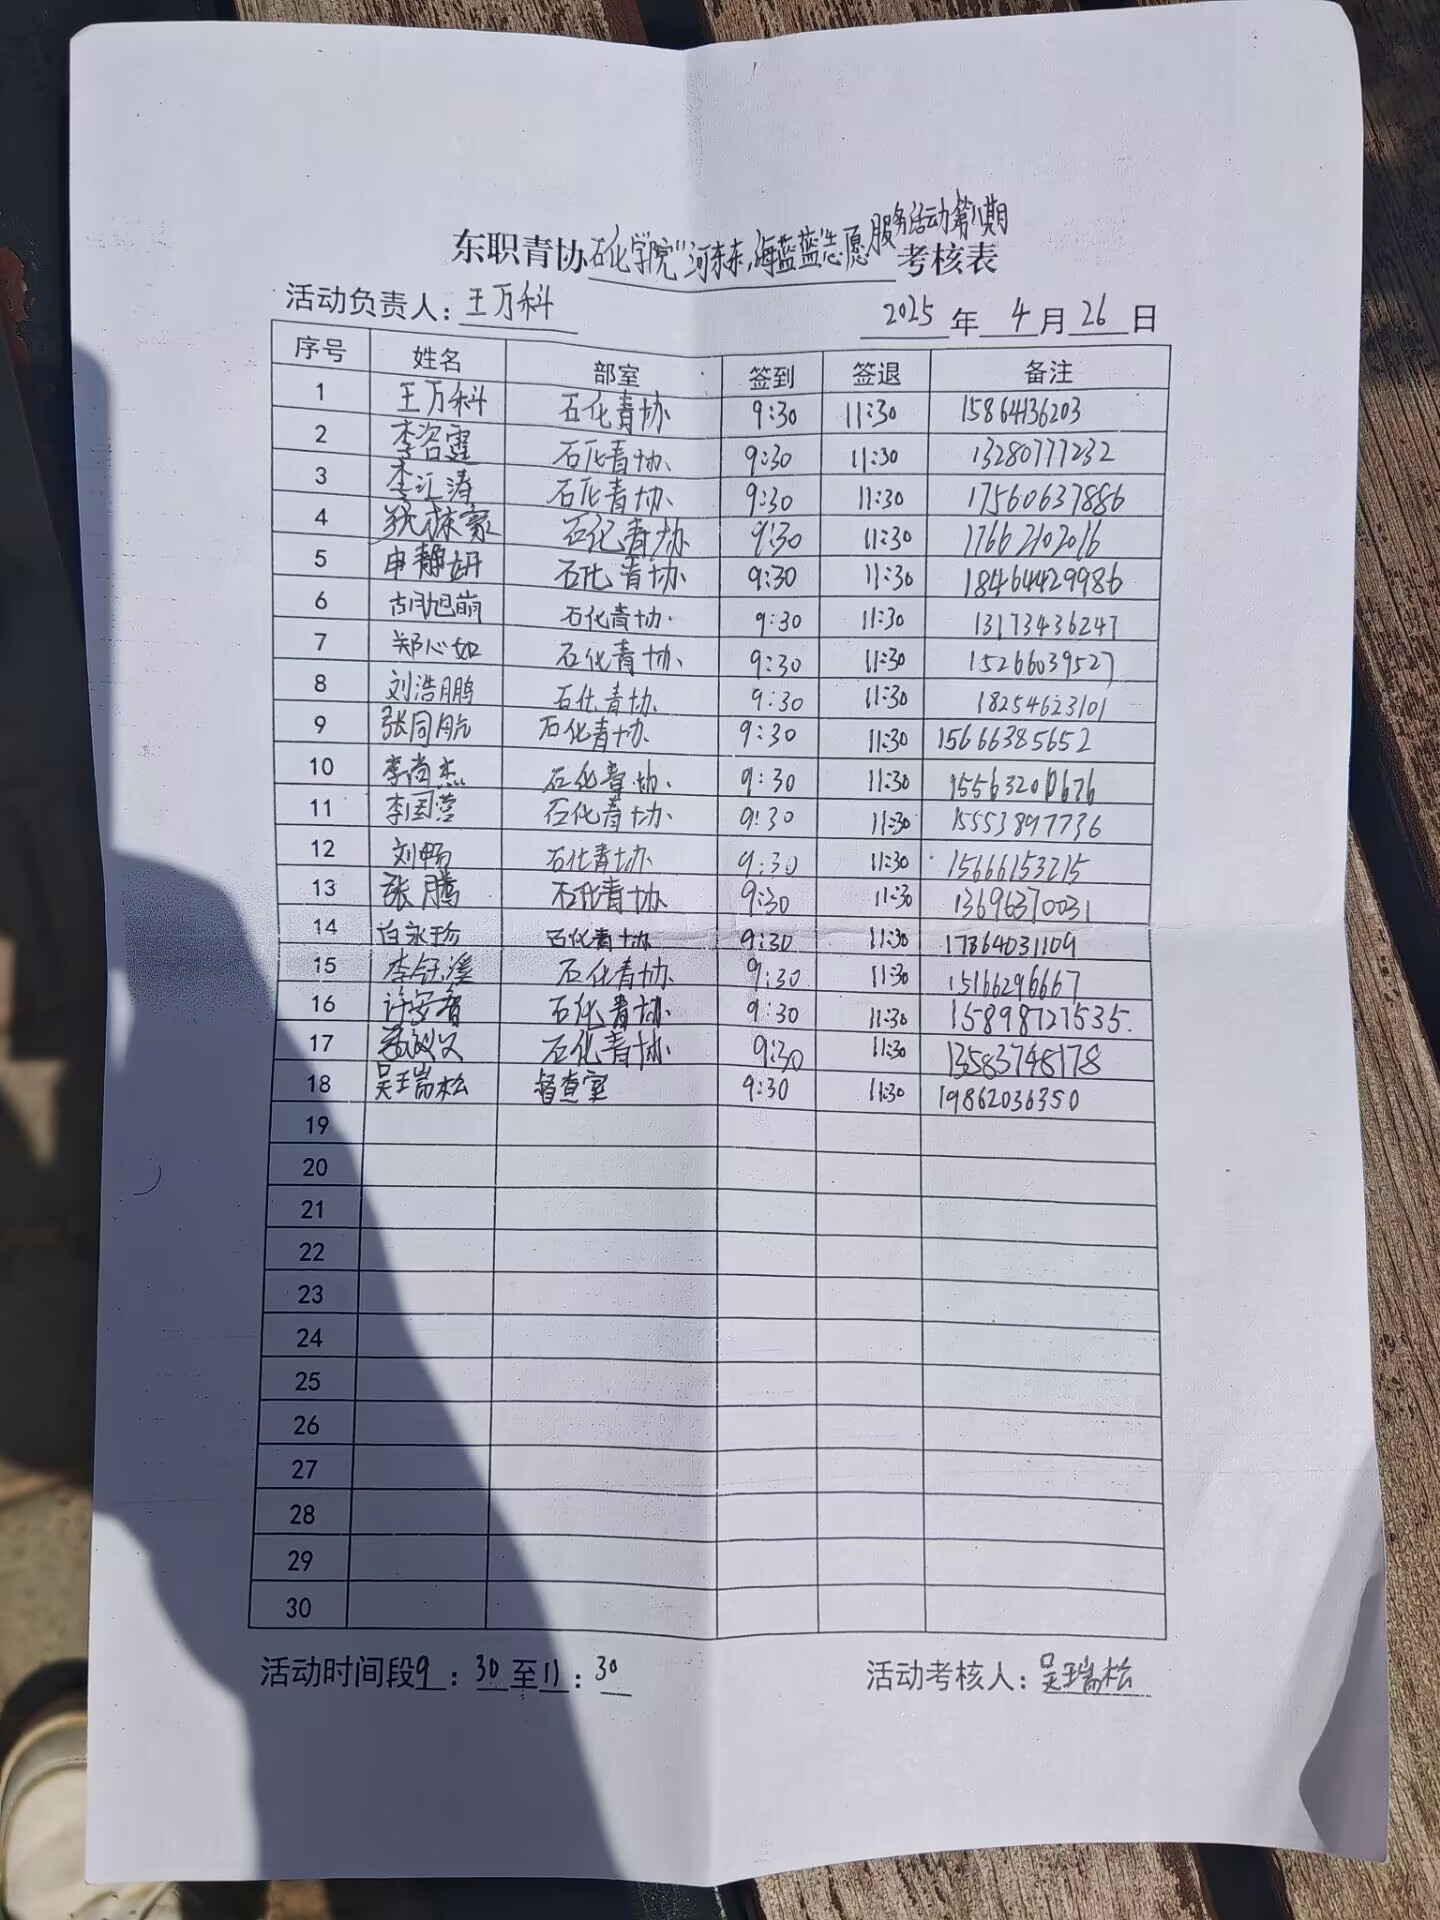 东职青协石化学院"河东东,海蓝蓝"志愿服务活动第八期考核表
活动负责人：王万科 2025年4月26日
序号 姓名 部室 签到 签退 备注
1 王万科 石化青协 9:30 11:30 15864136203
2 李咨霆 石化青协 9:30 11:30 13280777232
3 李汇涛 石化青协 9:30 11:30 17560637886
4 石化青协 9:30 11:30 17662102016
5 申静妍 石化青协 9:30 11:30 18464429986
6 胡旭萌 石化青协 9:30 11:30 13173436247
7 郑心如 石化青协 9:30 11:30 15266039527
8 刘浩鹏 石化青协 9:30 11:30 18254623101
9 张同航 石化青协 9:30 11:30 15666385652
10 李尚杰 石化青协 9:30 11:30
11 李国莹 石化青协 9:30 11:30 15553897736
12 刘畅 石化青协 9:30 11:30 15666153215
13 张腾 石化青协 9:30 11:30 13696370031
14 白永珍 石化青协 9:30 11:30 17864031109
15 李钰溪 石化青协 9:30 11:30 15166296667
16 石化青协 9:30 11:30 15898727535.
17 石化青协 9:30 11:30 13583748178
18 吴瑞松 督查室 9:30 11:30 19862036350
19
20
21
22
23
24
25
26
27
28
29
30
活动时间段9：30至11：30 活动考核人：吴瑞松